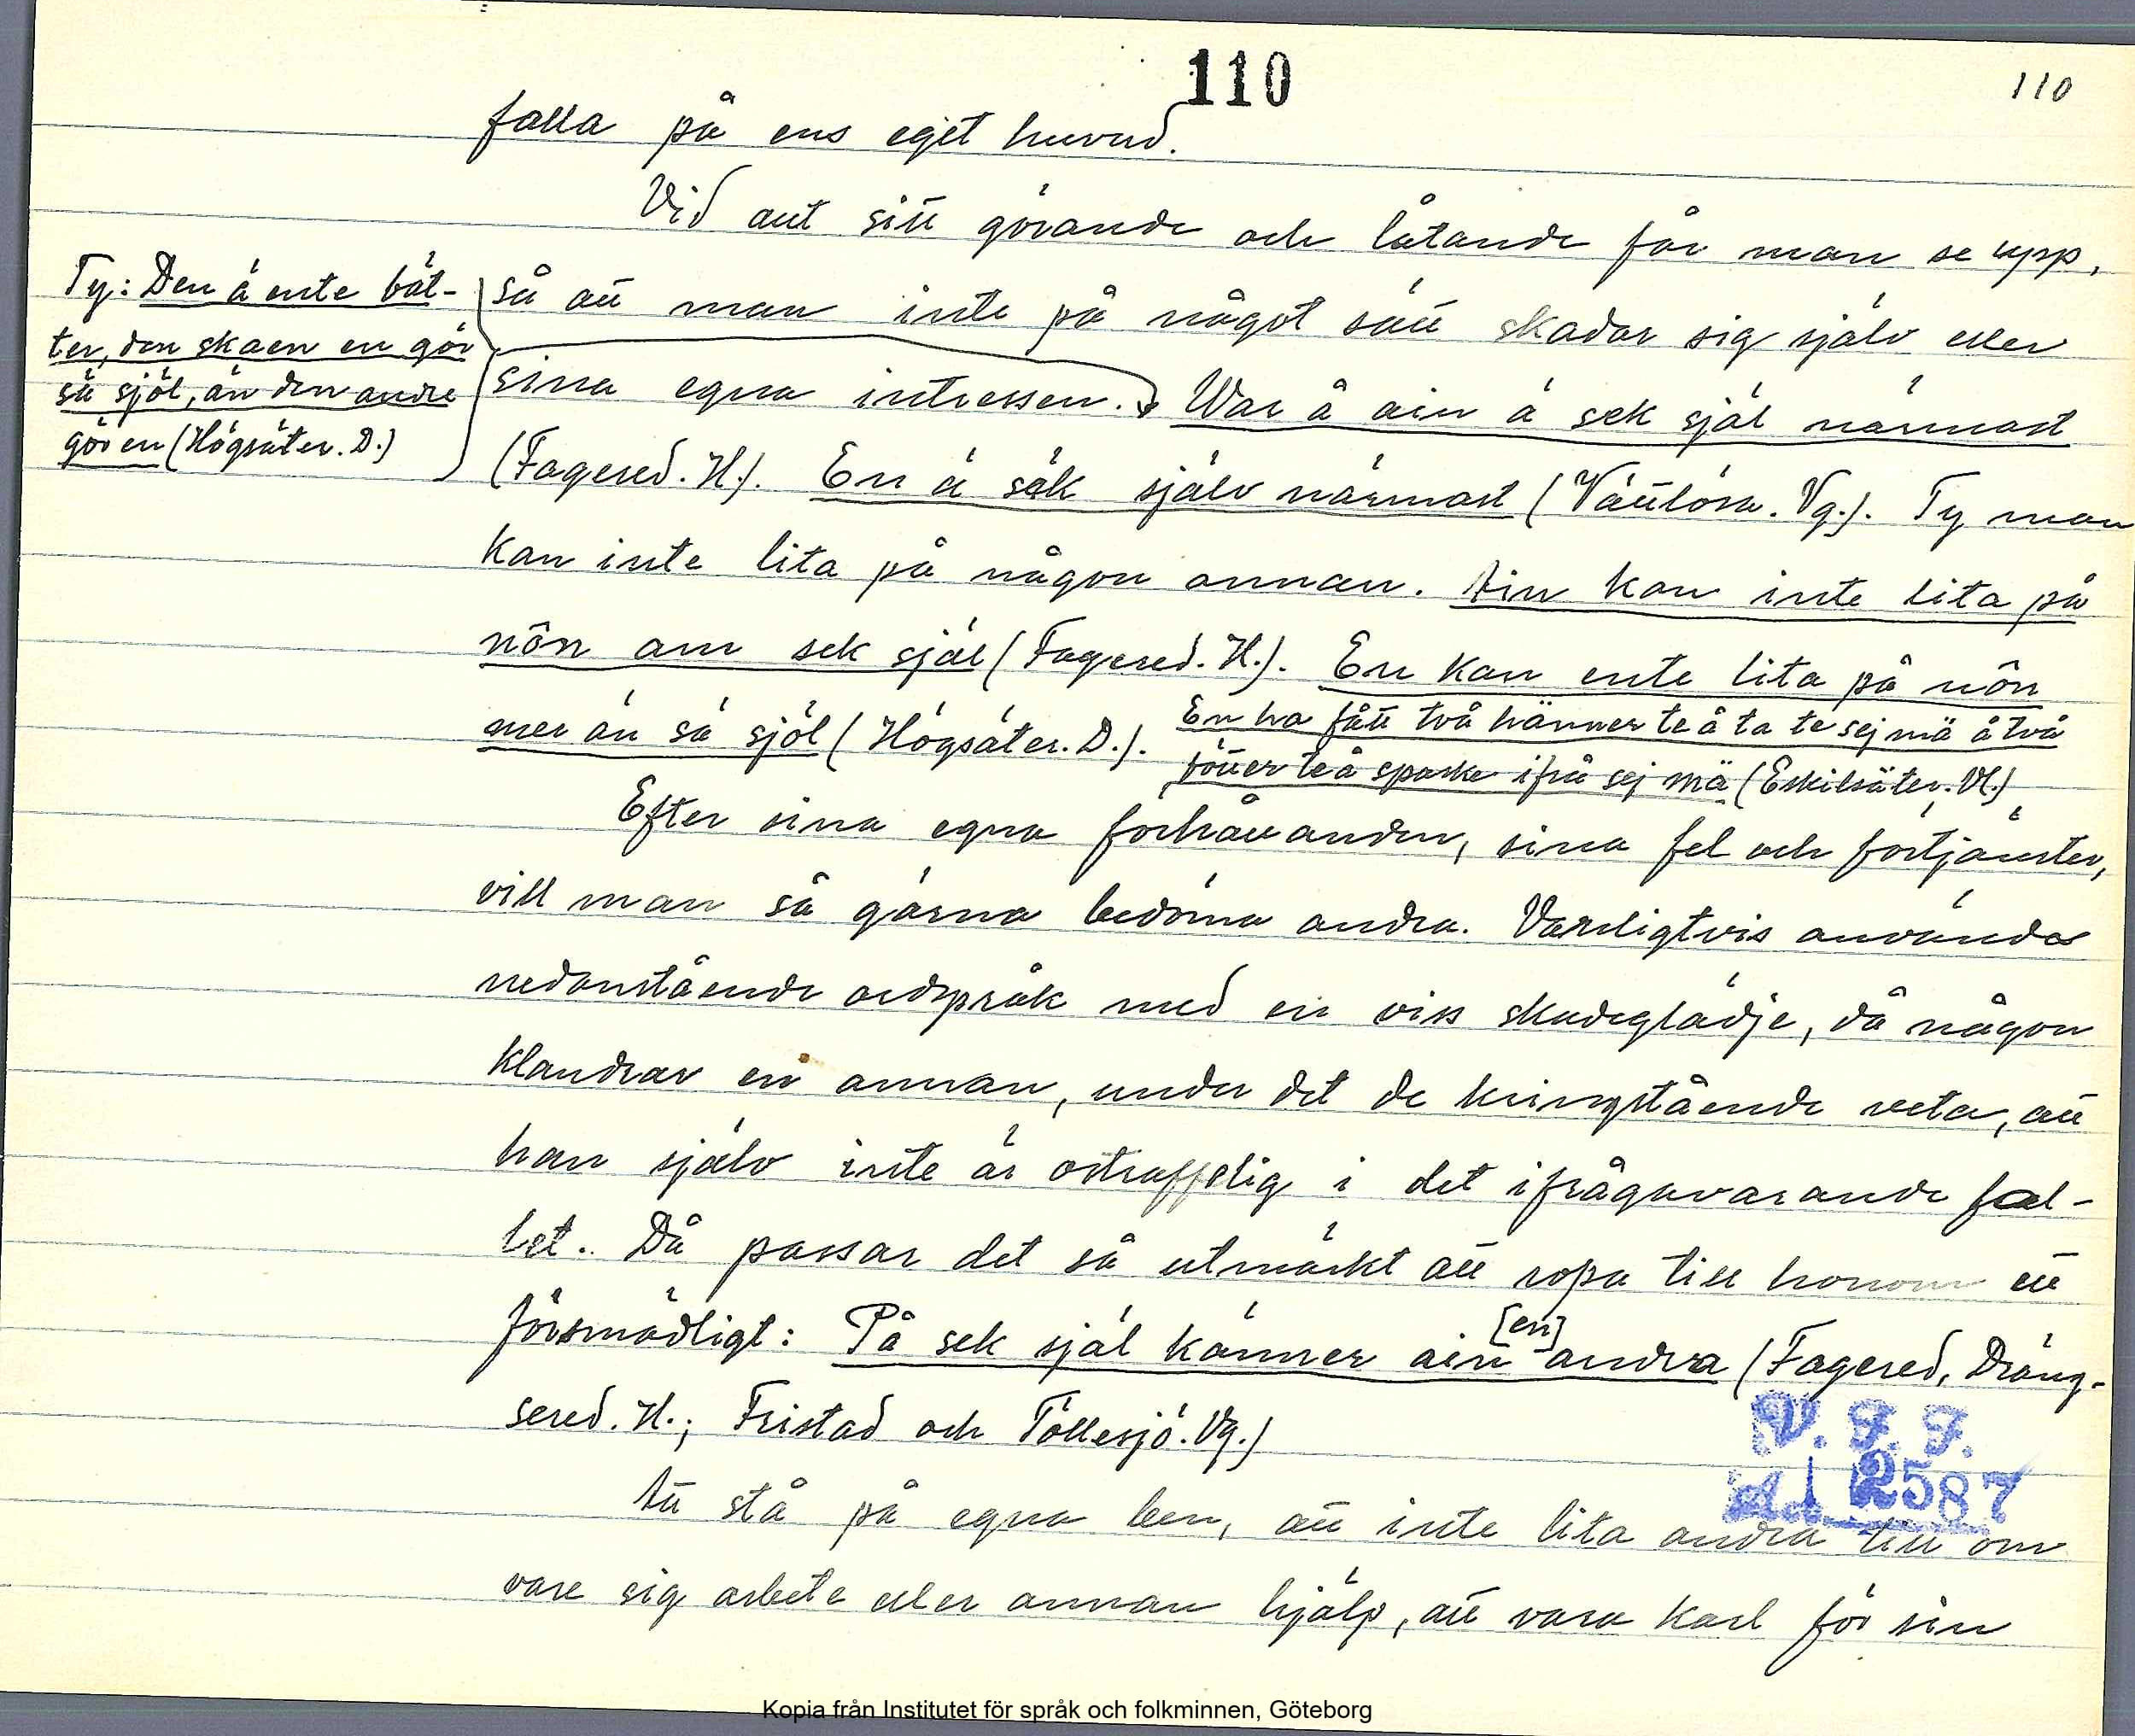 110
110
falla på ens eget huvud.
Vid allt sitt görande och låtande får man se upp,
så att man inte på något sätt skadar sig själv eller
sina egna intressen. War å ain ä sek själ närmast
Ty: Den ä ente båt-
ter, den skaen en gör
sä sjöl, än den andre
gör en (Högsäter. D.)
(Fagered. H.). En ä säk själv närmast (Vättlösa. Vg.). Ty man
kan inte lita på någon annan. Ain kan inte lita på
nôn ann sek själ (Fagered. H.). En kan ente lita på nôn
mer än sä sjöl (Högsäter. D.). En ha fått två hänner te å ta te sej mä å två
fötter te å sparke ifrå sej mä (Eskilsäter. Vl.)
Efter sina egna förhållanden, sina fel och förtjänster,
vill man så gärna bedöma andra. Vanligtvis användes
nedanstående ordspråk med en viss skadeglädje, då någon
klandrar en annan, under det de kringstående veta, att
han själv inte är ostrafflig i det ifrågavarande fal-
let. Då passar det så utmärkt att ropa till honom ett
försmädligt: På sek själ känner ain [en] andra (Fagered, Dräng-
sered. H.; Fristad och Töllesjö. Vg.)
V. F. F.
Ad 2587
Att stå på egna ben, att inte lita andra till om
vare sig arbete eller annan hjälp, att vara karl för sin
Kopia från Institutet för språk och folkminnen, Göteborg